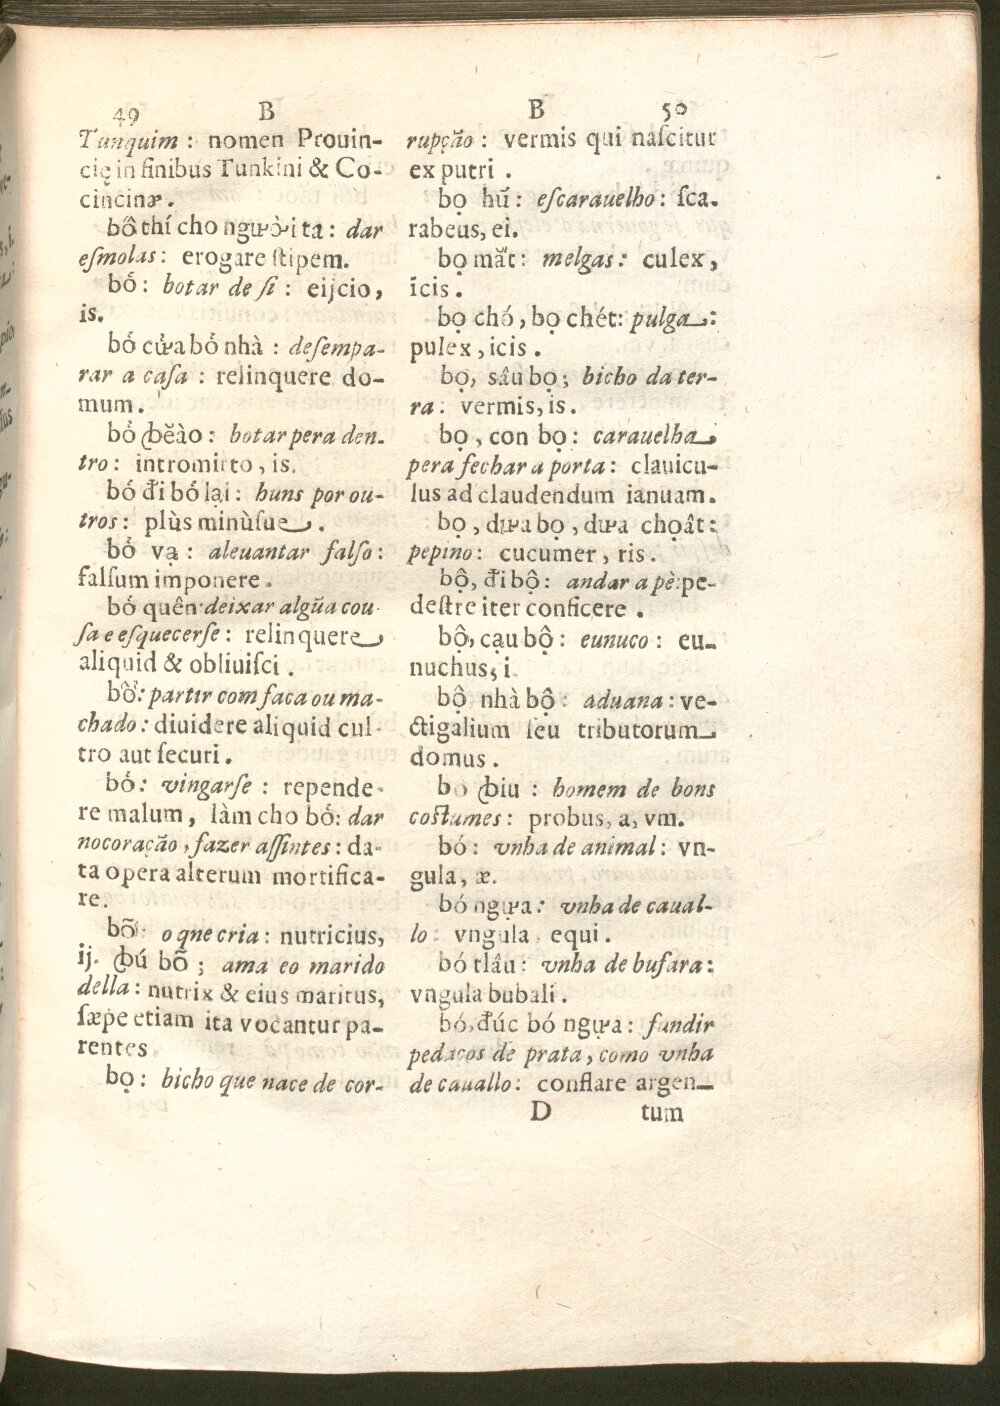 49 B
Tunquim : nomen Prouin-
cię in finibus Tunkini & Co-
cincinæ.
bố thí cho người ta : dar
eſmolas : erogare ſtipem.
bỏ : botar de ſi : eijcio,
is.
bỏ cửa bỏ nhà : deſempa-
rar a caſa : relinquere do-
mum.
bỏ ꞗĕào : botar pera den-
tro : intromitto, is.
bỏ đi bỏ lại : huns por ou-
tros : plùs minùſue.
bỏ vạ : aleuantar falſo :
falſum imponere.
bỏ quên deixar algũa cou
ſa e eſquecerſe : relinquere
aliquid & obliuiſci.
bổ : partir com faca ou ma-
chado : diuidere aliquid cul-
tro aut ſecuri.
bỏ : vingarſe : repende-
re malum, làm cho bỏ : dar
no coração, fazer aſſintes : da-
ta opera alterum mortifica-
re.
bõ : o que cria : nutricius,
ij. ꞗú bõ ; ama eo marido
della : nutrix & eius maritus,
ſæpe etiam ita vocantur pa-
rentes.
bọ : bicho que nace de cor-
B 50
rupção : vermis qui naſcitur
ex putri.
bọ hũ : eſcarauelho : ſca-
rabeus, ei.
bọ mắt : melgas : culex,
icis.
bọ chó, bọ chét : pulga :
pulex, icis.
bọ, sâu bọ ; bicho da ter-
ra : vermis, is.
bọ, con bọ : carauelha
pera fechar a porta : clauicu-
lus ad claudendum ianuam.
bọ, dưa bọ, dưa chọật :
pepino : cucumer, ris.
bộ, đi bộ : andar a pè : pe-
deſtre iter conficere.
bộ, cạu bộ : eunuco : eu-
nuchus, i.
bộ nhà bộ : aduana : ve-
ctigalium ſeu tributorum
domus.
bo ꞗiu : homem de bons
coſtumes : probus, a, vm.
bó : vnha de animal : vn-
gula, æ.
bó ngựa : vnha de caual-
lo : vngula equi.
bó tlâu : vnha de bufara :
vngula bubali.
bó, đúc bó ngựa : fundir
pedaços de prata, como vnha
de cauallo : conflare argen-
D tum